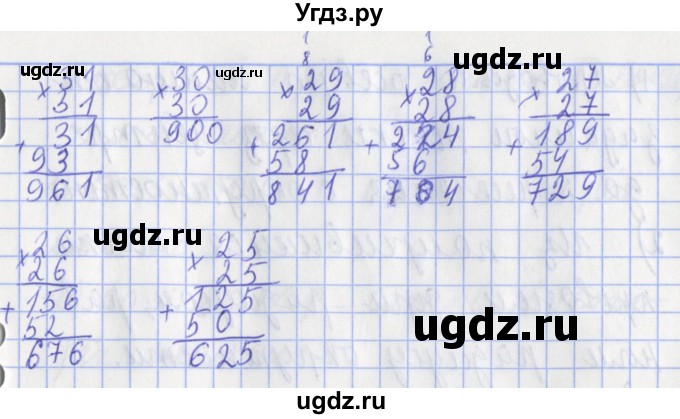 Угдз.ру
1 1
8 6
× 31 × 30 × 29 × 28 × 27
31 30 29 28 27
+ 31 900 + 261 + 224 + 189
93 58 56 54
961 841 784 729
× 26 × 25
26 25
+ 156 + 125
52 50
676 625
ugdz.ru
ugdz.ru
ugdz.ru
ugdz.ru
ugdz.ru
ugdz.ru
ugdz.ru
ugdz.ru
Угдз.ру